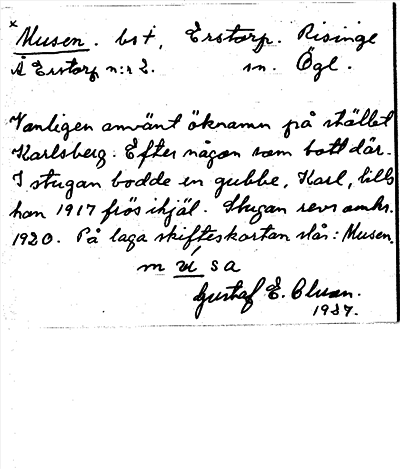 x Musen. bst, Erstorp. Risinge
Å Erstorp n:r 2. sn. Ögl.
Vanligen använt öknamn på stället
Karlsberg. Efter någon som bott där.
I stugan bodde en gubbe, Karl, tills
han 1917 frös ihjäl. Stugan revs omkr.
1920. På laga skifteskartan står: Musen.
m ús a
Gustaf E.
1937.